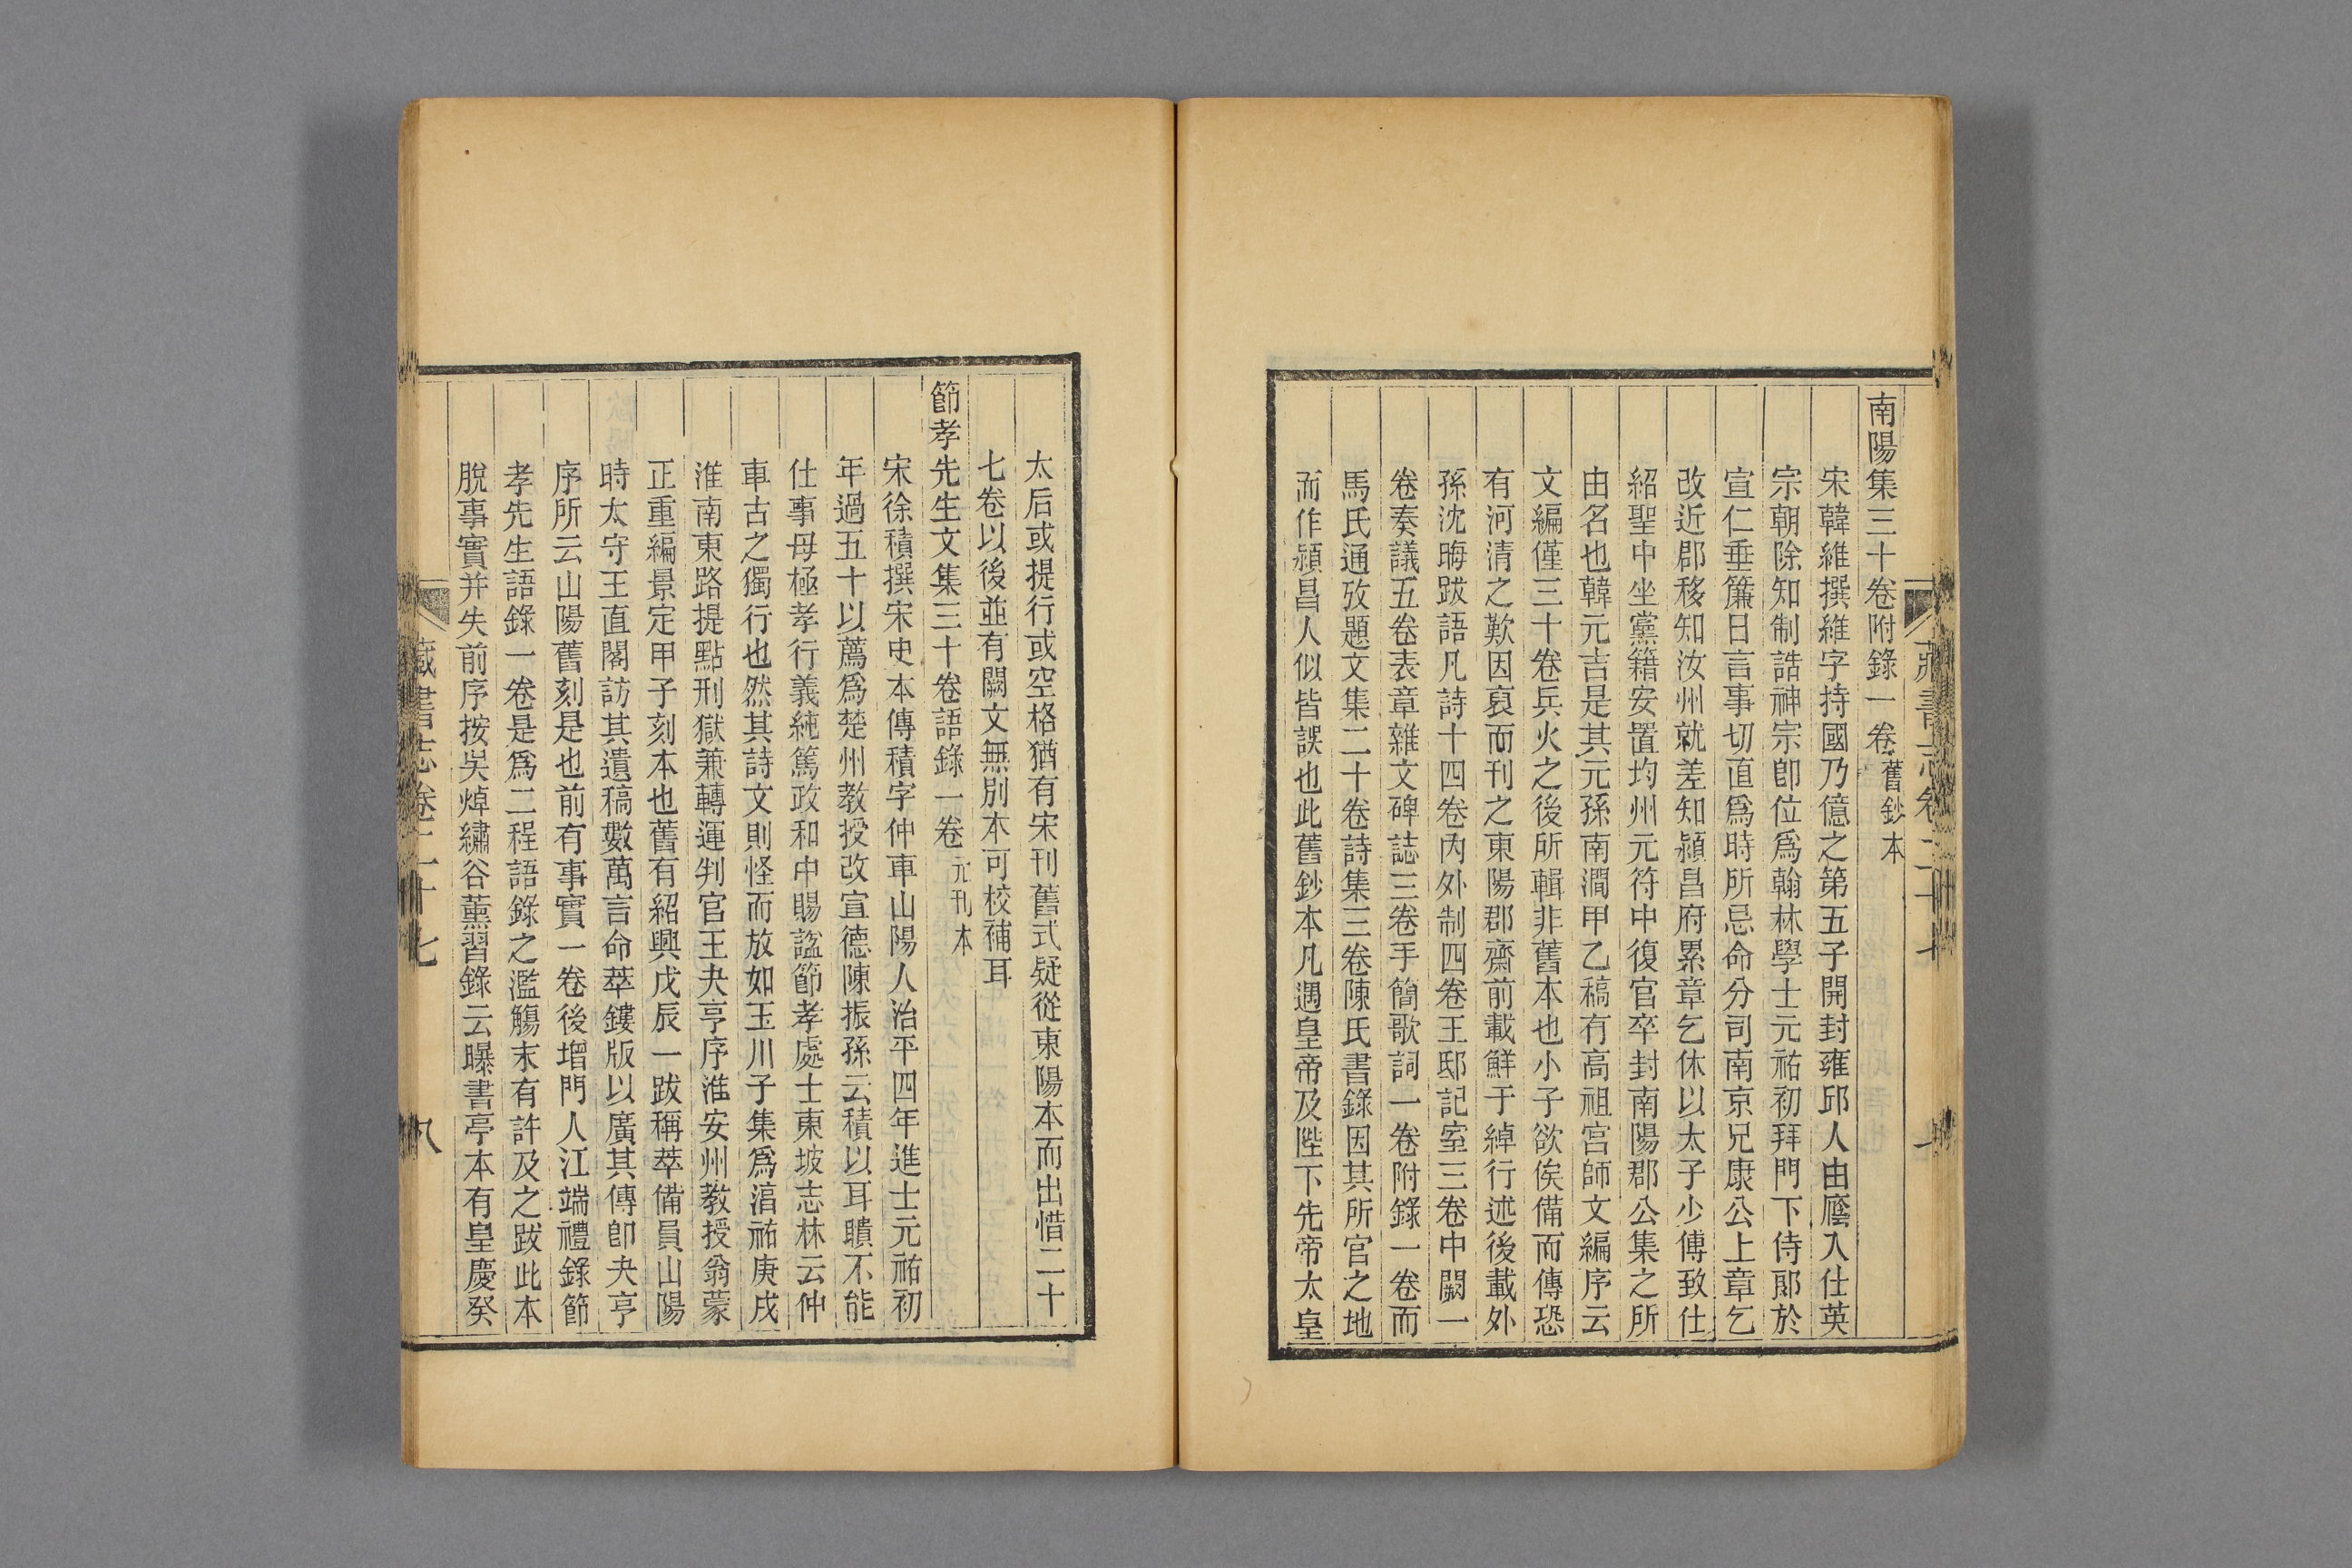 藏書志卷二十七
南陽集三十卷附錄一卷 舊鈔本
宋韓維撰維字持國乃億之第五子開封雍邱人由廕入仕英
宗朝除知制誥神宗卽位爲翰林學士元祐初拜門下侍郎於
宣仁垂簾日言事切直爲時所忌命分司南京兄康公上章乞
改近郡移知汝州就差知潁昌府累章乞休以太子少傅致仕
紹聖中坐黨籍安置均州元符中復官卒封南陽郡公集之所
由名也韓元吉是其元孫南澗甲乙稿有高祖宮師文編序云
文編僅三十卷兵火之後所輯非舊本也小子欲俟備而傳恐
有河清之歎因裒而刊之東陽郡齋前載鮮于綽行述後載外
孫沈晦跋語凡詩十四卷內外制四卷王邸記室三卷中闕一
卷奏議五卷表章雜文碑誌三卷手簡歌詞一卷附錄一卷而
馬氏通攷題文集二十卷詩集三卷陳氏書錄因其所官之地
而作潁昌人似皆誤也此舊鈔本凡遇皇帝及陛下先帝太皇
太后或提行或空格猶有宋刊舊式疑從東陽本而出惜二十
七卷以後並有闕文無別本可校補耳
節孝先生文集三十卷語錄一卷 元刊本
宋徐積撰宋史本傳積字仲車山陽人治平四年進士元祐初
年過五十以薦爲楚州教授改宣德陳振孫云積以耳聵不能
仕事母極孝行義純篤政和中賜諡節孝處士東坡志林云仲
車古之獨行也然其詩文則怪而放如玉川子集爲淳祐庚戌
淮南東路提點刑獄兼轉運判官王夬亨序淮安州教授翁蒙
正重編景定甲子刻本也舊有紹興戊辰一跋稱萃備員山陽
時太守王直閣訪其遺稿數萬言命萃鏤版以廣其傳卽夬亨
序所云山陽舊刻是也前有事實一卷後增門人江端禮錄節
孝先生語錄一卷是爲二程語錄之濫觴末有許及之跋此本
脫事實并失前序按吳焯繡谷薰習錄云曝書亭本有皇慶癸
藏書志卷二十七
八